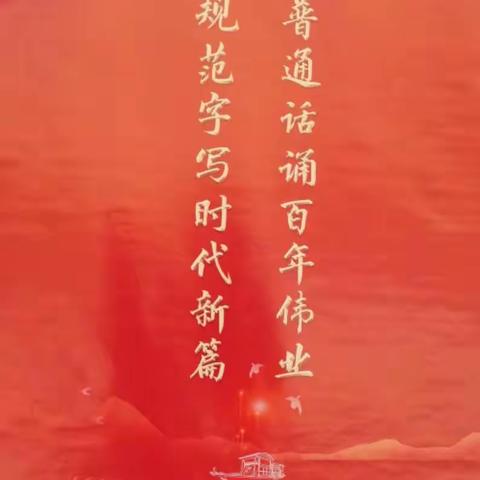 普通话诵百年伟业
规范字写时代新篇